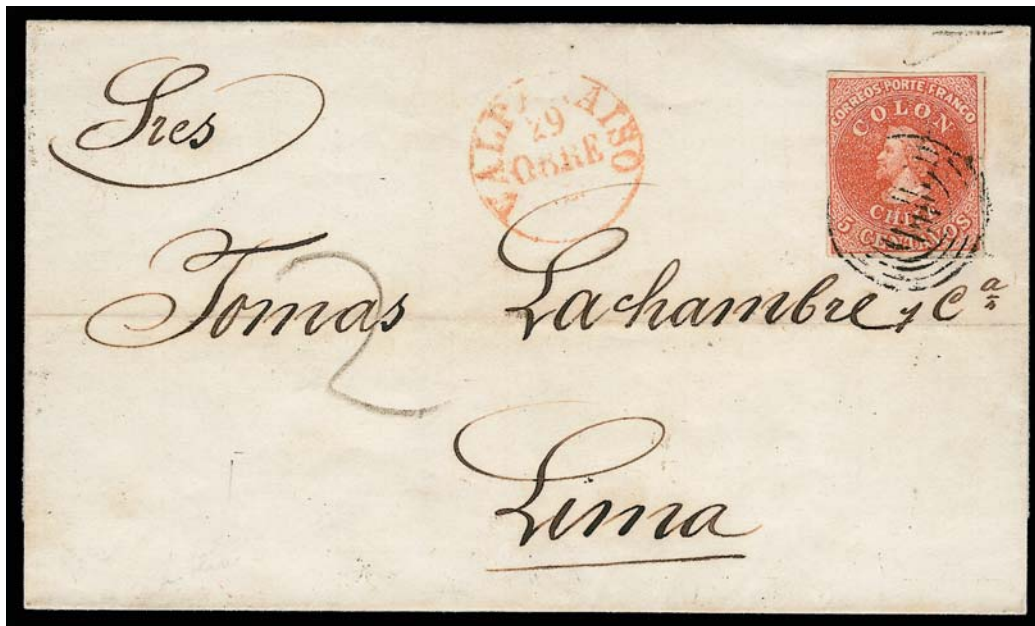 Sres
VALPARAISO
29
OBRE
CORREOS PORTE FRANCO
COLON
CHILE
5 CENTAVOS
Tomas Lachambre y Cª
2
Lima